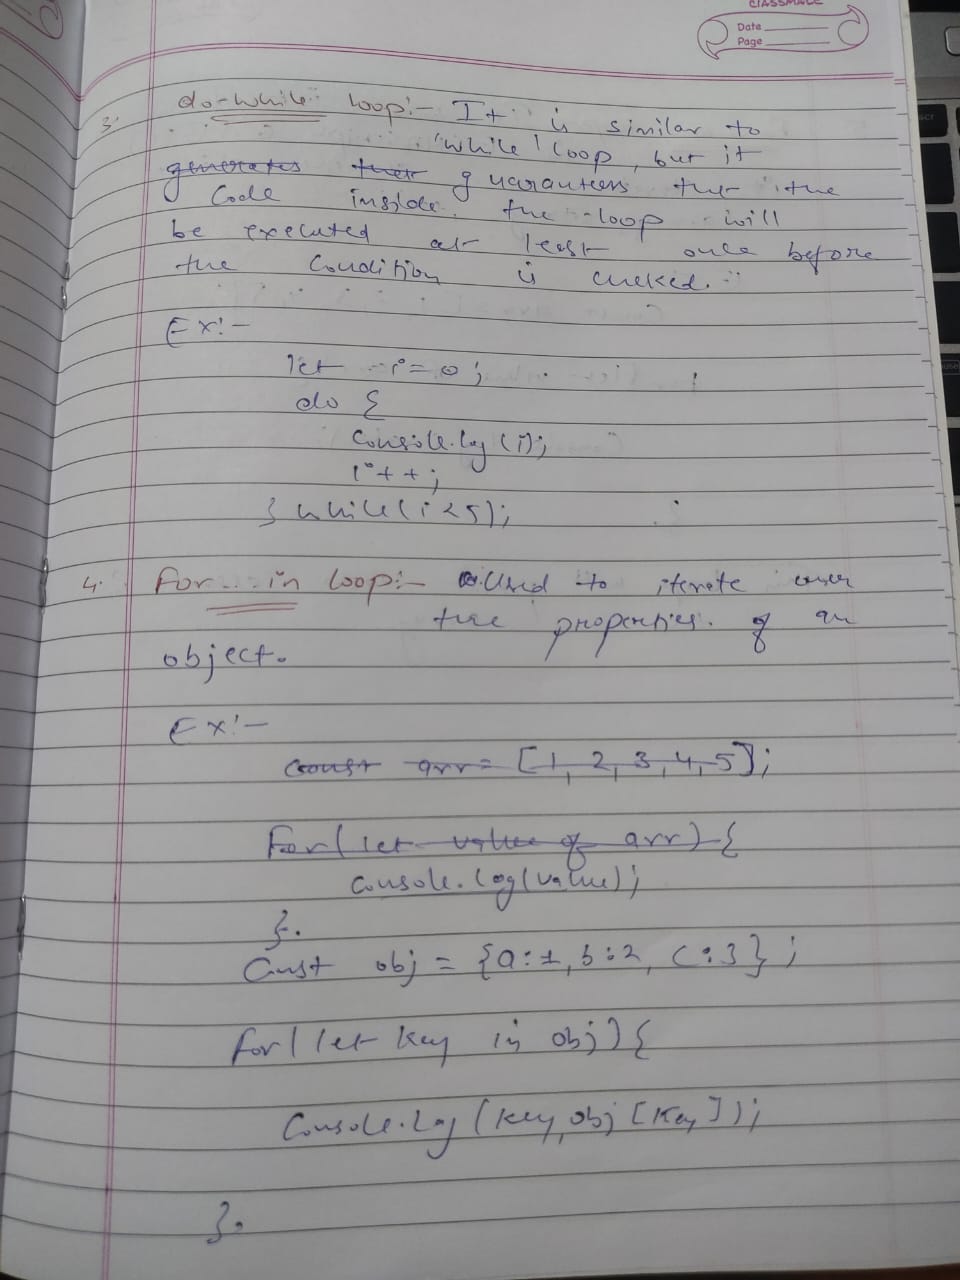 classmate
Date
Page
3. do-while loop:- It is similar to
'while' loop, but it
generates their guarantees that the
Code inside the loop will
be executed at least once before
the Condition is checked.
Ex:-
let i = 0;
do {
Console.log(i);
i++;
} while(i<5);
4. For...in loop:- Used to iterate over
the properties of an
object.
Ex:-
const arr = [1, 2, 3, 4, 5];
For(let value of arr) {
console.log(value);
}.
Const obj = {a:1, b:2, c:3};
for(let key in obj) {
Console.log(key, obj[key]);
}.